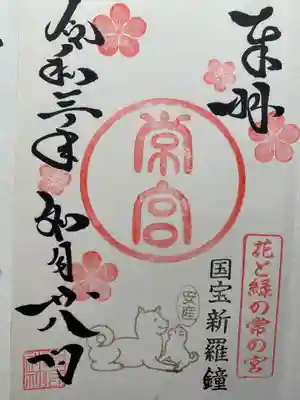 奉拝
花と緑の常の宮
国宝新羅鐘
常宮
安産
令和三年如月廿八日